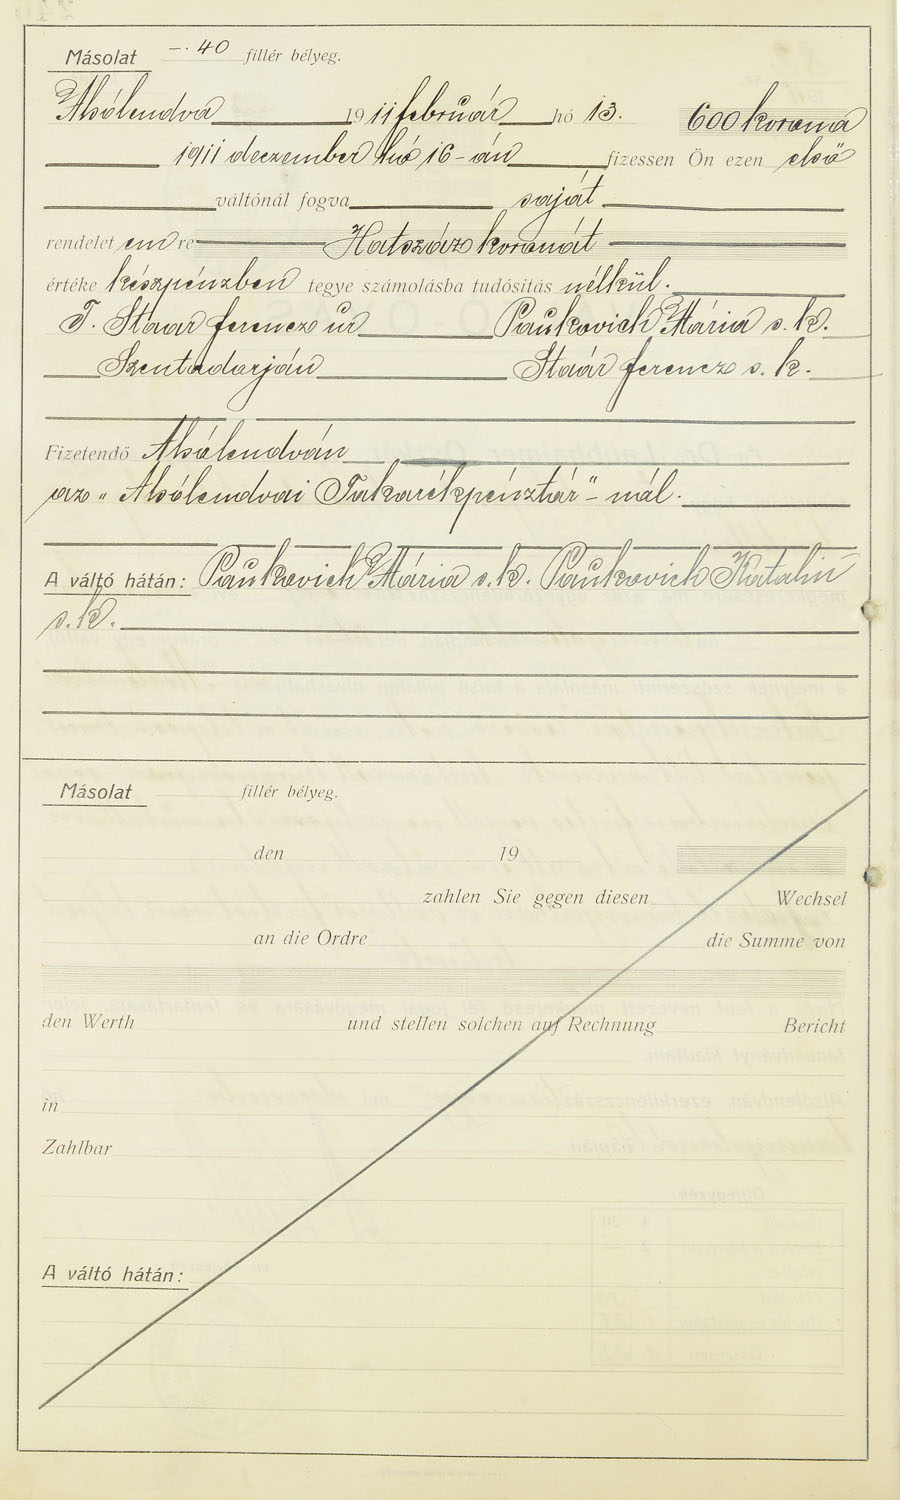 Másolat —.40 fillér bélyeg.
Alsólendva 1911 február hó 13. 600 korona
1911 deczember hó 16-án fizessen Ön ezen első
váltónál fogva saját
rendelet em re Hatszáz koronát
értéke készpénzben tegye számolásba tudósítás nélkül.
T. Staar ferencz úr Paukovich Mária s. k.
Szentadorján Staár ferencz s. k.
Fizetendő Alsólendván
az „Alsólendvai Takarékpénztár"-nál.
A váltó hátán: Paukovich Mária s.k. Paukovich Katalin
s.k.
Másolat fillér bélyeg.
den 19
zahlen Sie gegen diesen Wechsel
an die Ordre die Summe von
den Werth und stellen solchen auf Rechnung Bericht
in
Zahlbar
A váltó hátán: